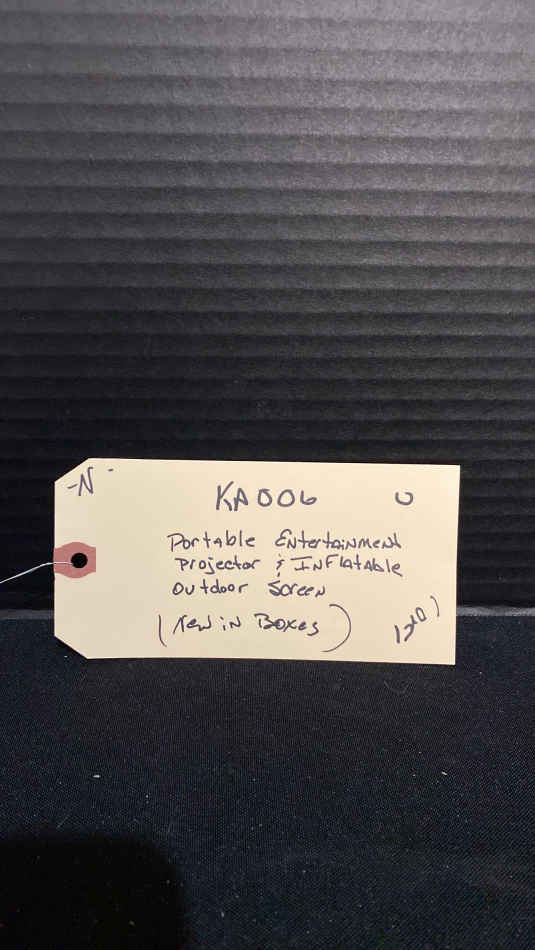 -N-
KA006 U
Portable Entertainment
Projector & INFlatable
Outdoor Screen
(New in Boxes)